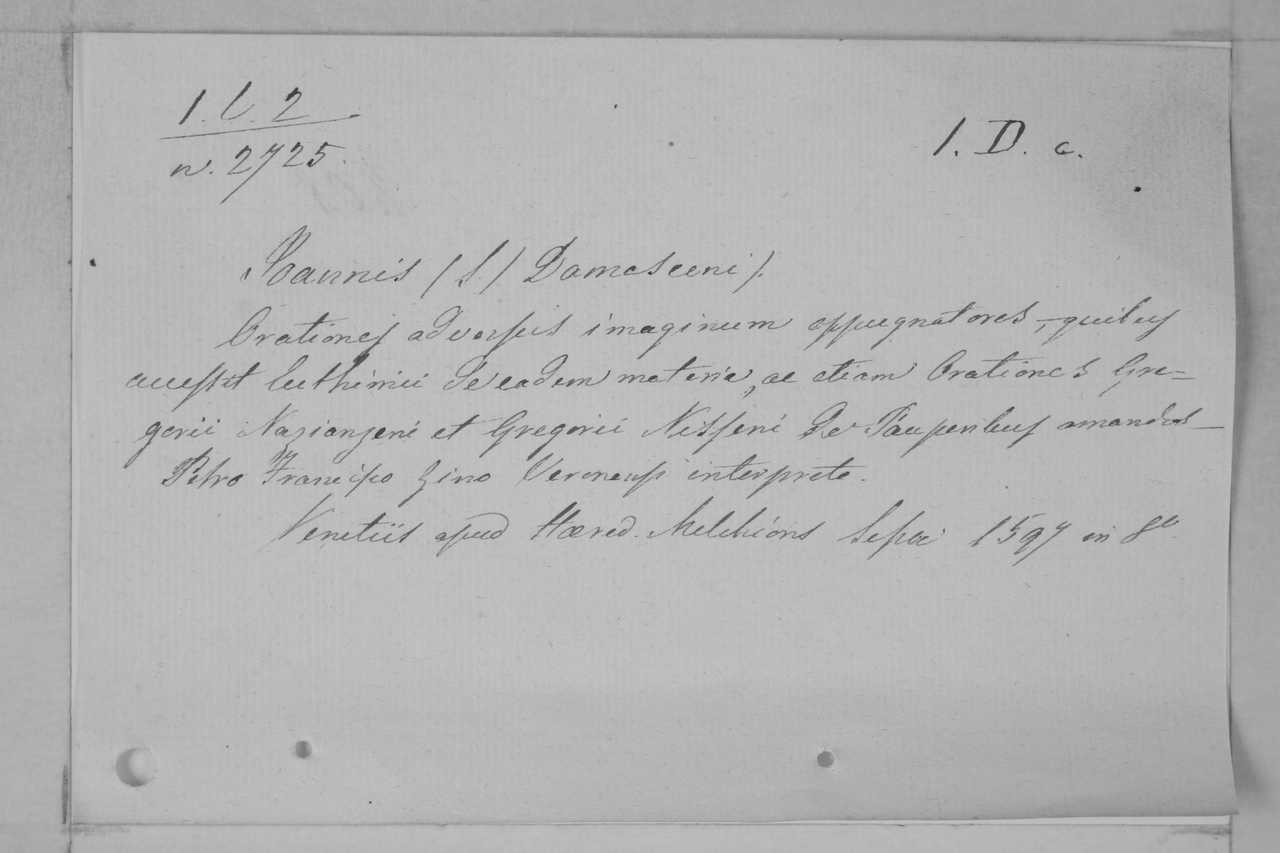 1. C. 2
n. 2725.
1. D. c.
Joannis (S.) Damasceni).
Orationes adversus imaginum oppugnatores, quibus
accessit Euthimii de eadem materia, ac etiam Orationes Gre-
gorii Nazianzeni et Gregorii Nisseni de Pauperibus amandis
Petro Francisco Zino Veronensi interprete.
Venetiis apud Hæred. Melchioris Sessæ 1597 in 8º